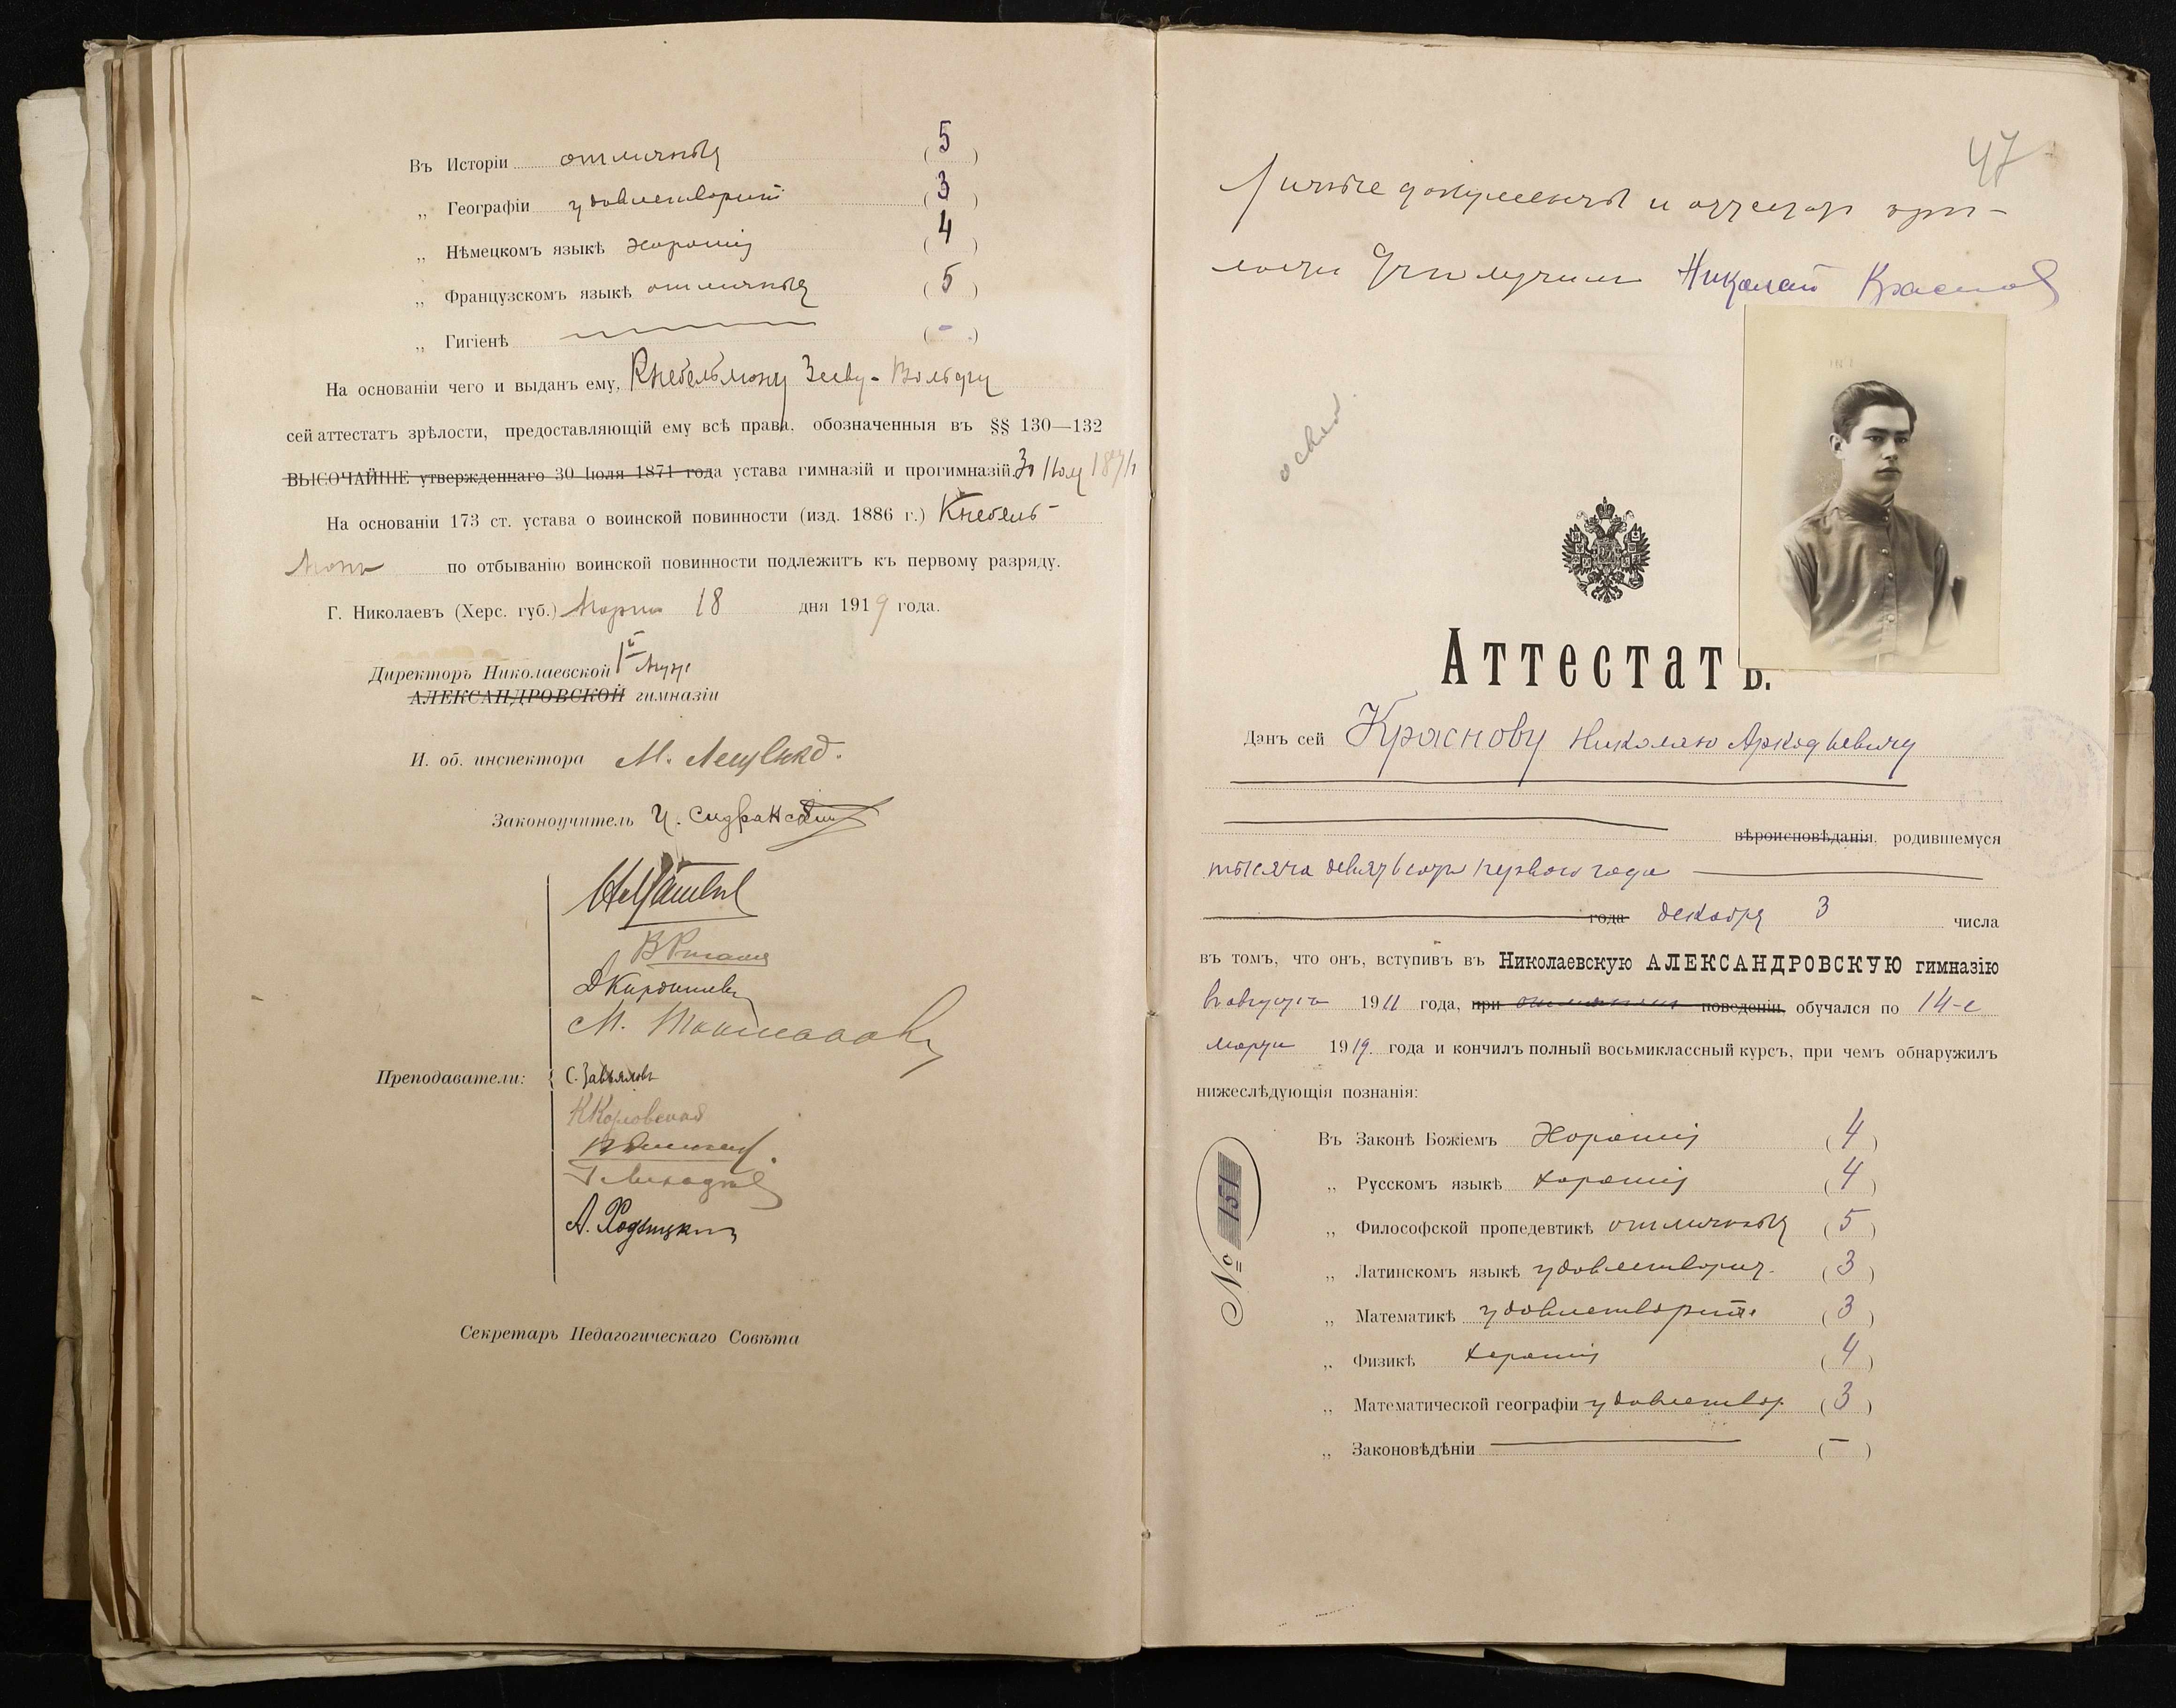 Въ Исторіи отличныя (5)
„ Географіи удовлетворит (3)
„ Нѣмецкомъ языкѣ хорошія (4)
„ Французскомъ языкѣ отличныя (5)
„ Гигіенѣ (-)
На основаніи чего и выданъ ему, Кнебельману Зееву-Вольфу
сей аттестатъ зрѣлости, предоставляющій ему всѣ права, обозначенныя въ §§ 130—132
ВЫСОЧАЙШЕ утвержденнаго 30 Іюля 1871 года устава гимназій и прогимназій. 30 Іюля 1871
На основаніи 173 ст. устава о воинской повинности (изд. 1886 г.) Кнебель-
манъ по отбыванію воинской повинности подлежитъ къ первому разряду.
Г. Николаевъ (Херс. губ.) Марта 18 дня 1919 года.
Директоръ Николаевской 1й муж
АЛЕКСАНДРОВСКОЙ гимназіи
И. об. инспектора М. Лещенко.
Законоучитель
Преподаватели:
С. Завьяловъ
К Карловская
А. Ходыцкий
Секретарь Педагогическаго Совѣта
47
Личные документы и аттестат
получил Николай Краснов
Аттестатъ.
Данъ сей Краснову Николаю Аркадьевичу
вѣроисповѣданія, родившемуся
тысяча девятьсот первого года
года декабря 3 числа
въ томъ, что онъ, вступивъ въ Николаевскую АЛЕКСАНДРОВСКУЮ гимназію
въ августе 1911 года, при отличномъ поведеніи, обучался по 14-е
марта 1919. года и кончилъ полный восьмиклассный курсъ, при чемъ обнаружилъ
нижеслѣдующія познанія:
Въ Законѣ Божіемъ Хорошія (4)
„ Русскомъ языкѣ хорошія (4)
„ Философской пропедевтикѣ отличныя (5)
„ Латинскомъ языкѣ удовлетворит. (3)
„ Математикѣ удовлетворит. (3)
„ Физикѣ хорошія (4)
„ Математической географіи удовлетвор. (3)
„ Законовѣдѣніи (-)
№ 151